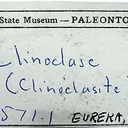 State Museum — PALEONTO
Clinoclase
(Clinoclasite)
571.1 EUREKA,